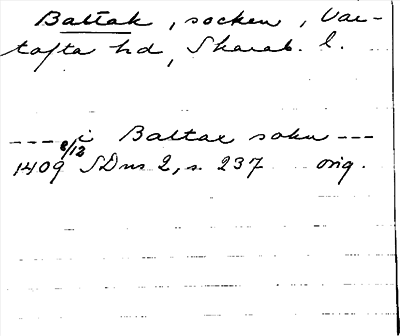 Baltak, socken, Var-
tofta hd, Skarab. l.
---- i Baltae sokn ---
8/12
1409 SDns 2, s. 237 orig.